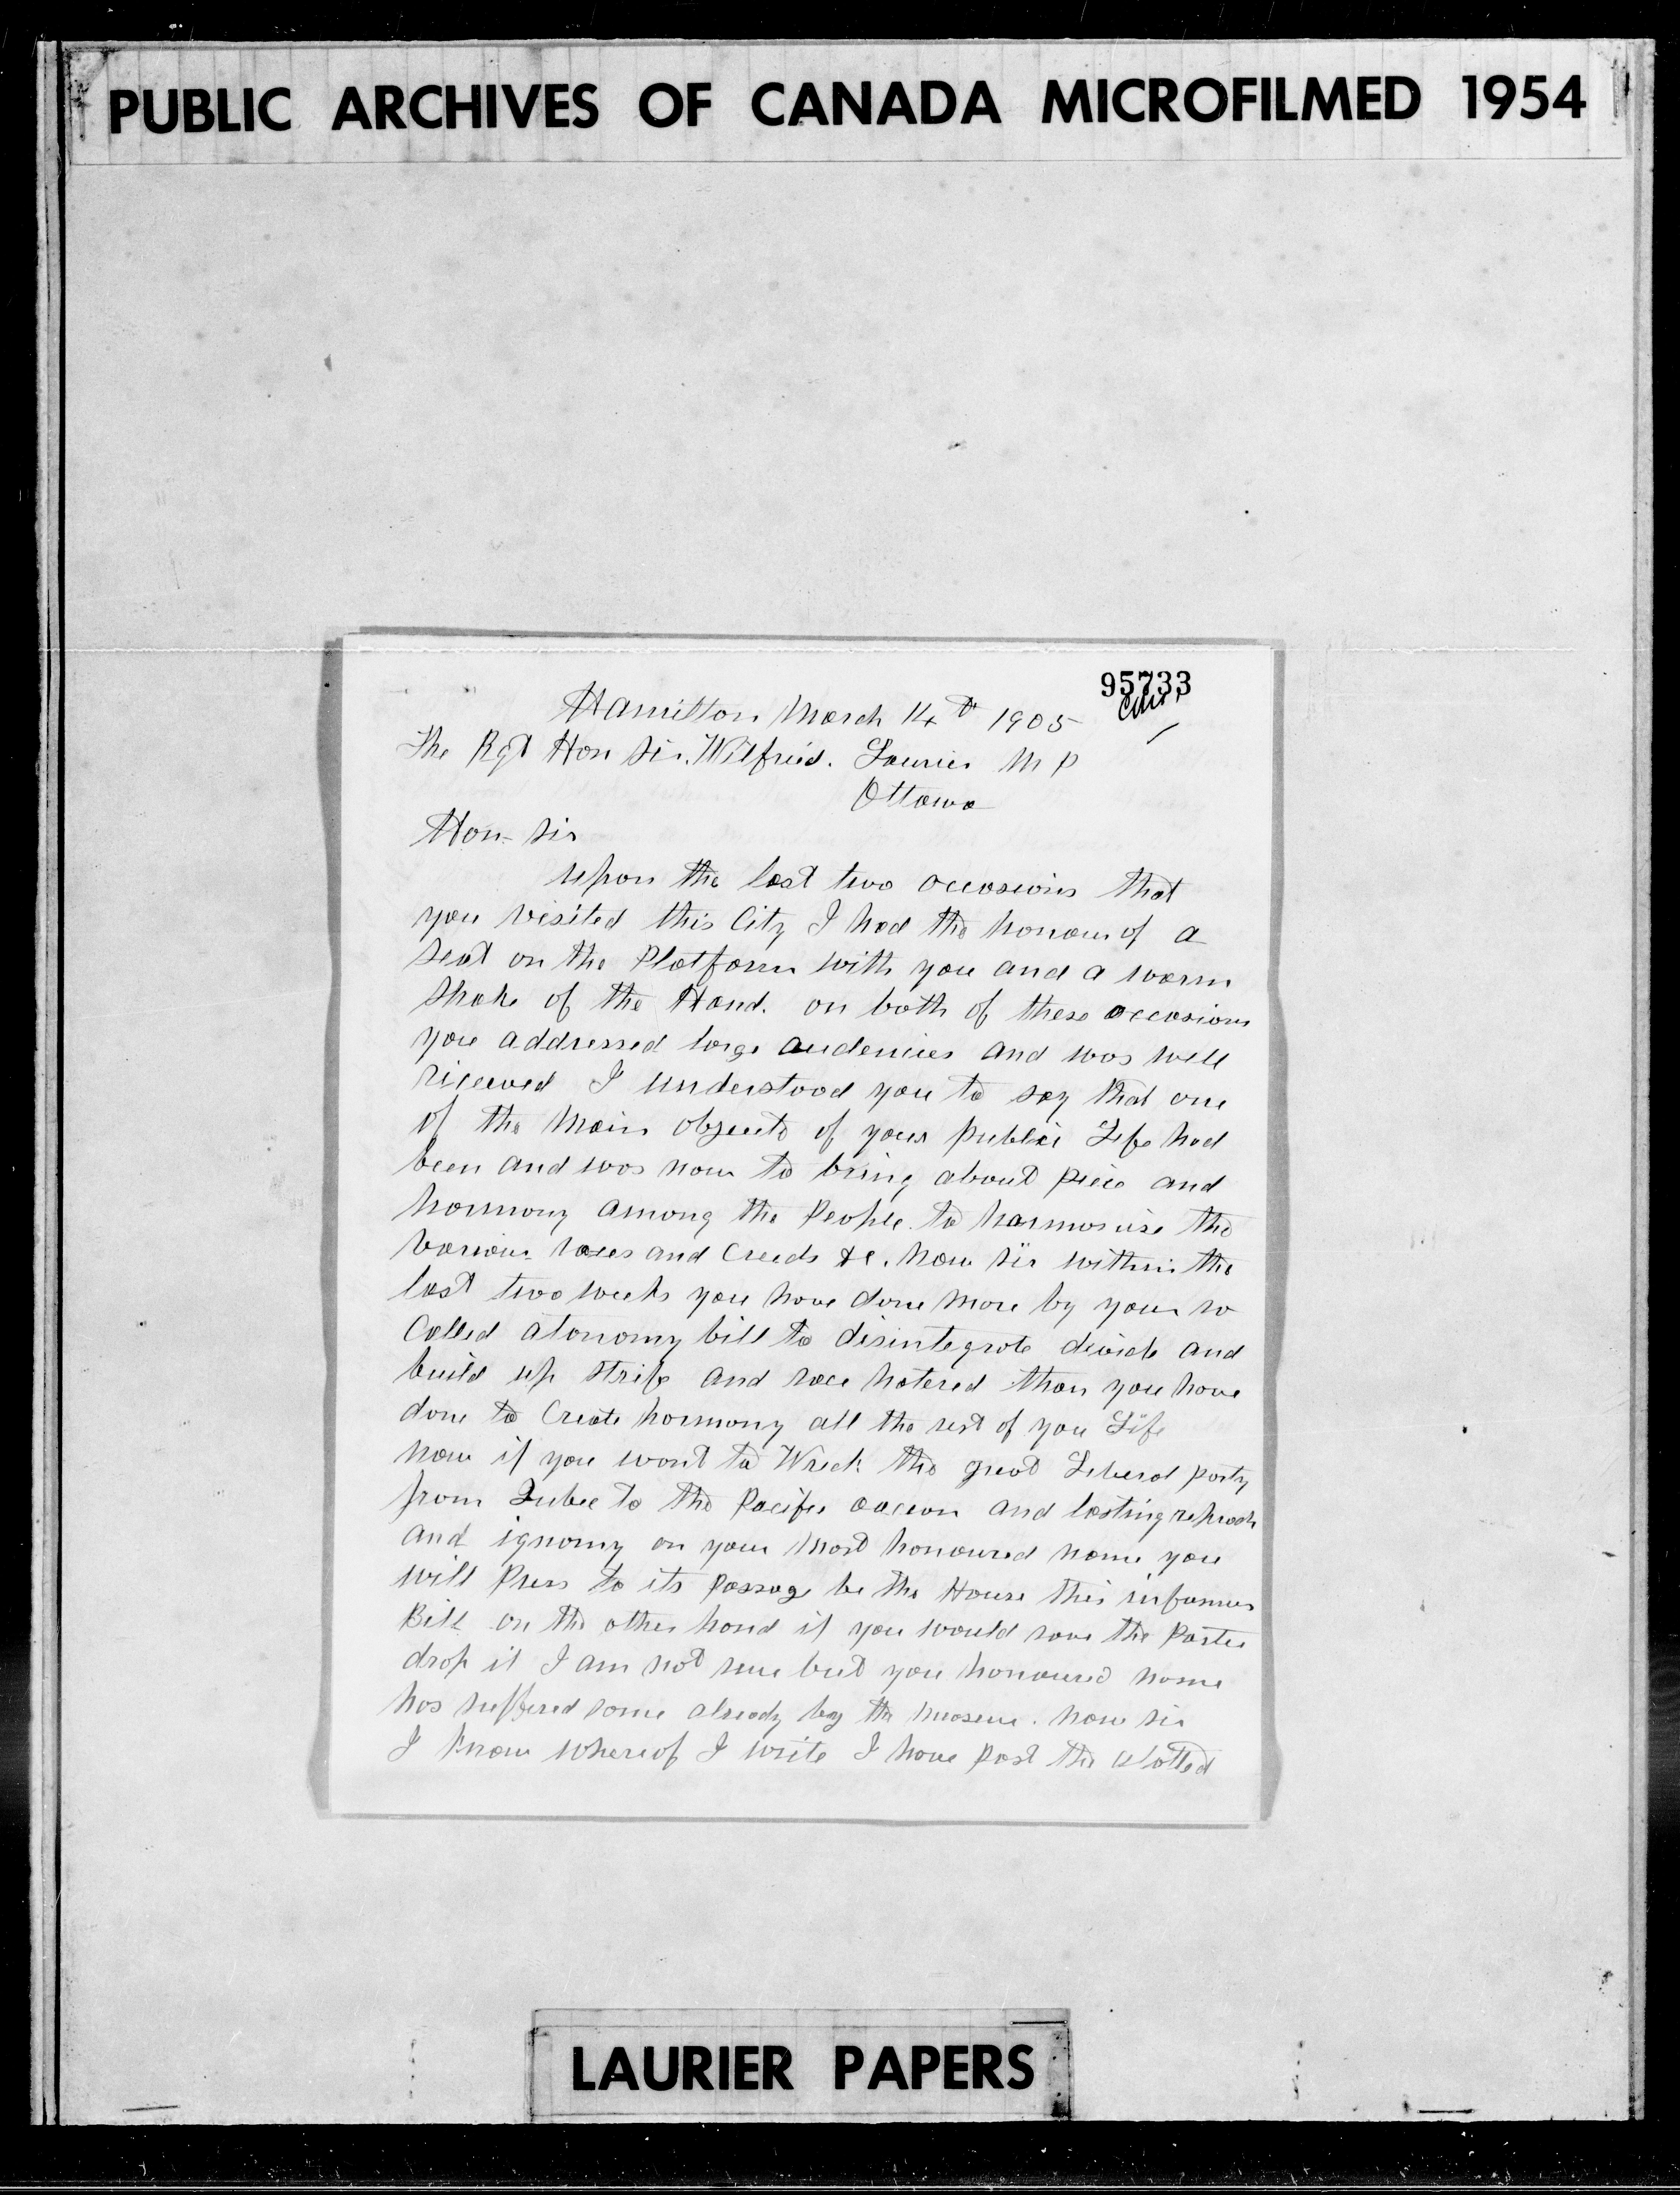 PUBLIC ARCHIVES OF CANADA MICROFILMED 1954
95733
Hamilton March 14th 1905
The Rgt Hon Sir. Wilfrid. Laurier M P
Ottawa
Hon- Sir
upon the last two occasions that
you visited this City I had the honour of a
seat on the Platform with you and a warm
shake of the Hand. on both of these occasions
you addressed large audences and was well
riceived I understood you to say that one
of the Main objects of your public Life had
been and was now to bring about piece and
harmony among the People. to harmonise the
various races and Creeds &c. now sir within the
last two weeks you have done more by your so
Called atonomy bill to disintegrate devide and
build up strife and race hatered than you have
done to Create harmony all the rest of you Life
now if you want to Wreck the great Liberal party
from Qubec to the Pacific and lasting reproach
and ignomy on your most honoured name you
will Press to its passage be the House this infamus
Bill on the other hand if you would save the
drop it I am not sure but you honoured name
has suffered some already by the . now sir
I know whereof I write I have past the alotted
LAURIER PAPERS